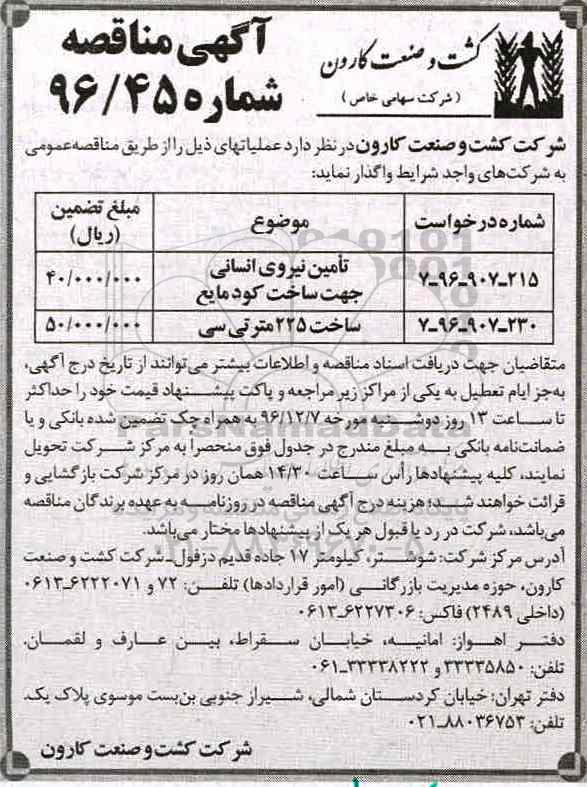 آگهی مناقصه
شماره ۹۶/۴۵
کشت و صنعت کارون
(شرکت سهامی خاص)
شرکت کشت و صنعت کارون در نظر دارد عملیاتهای ذیل را از طریق مناقصه عمومی
به شرکت‌های واجد شرایط واگذار نماید:
شماره درخواست	موضوع	مبلغ تضمین (ریال)
۷-۹۶-۹۰۷-۲۱۵	تأمین نیروی انسانی جهت ساخت کود مایع	۴۰/۰۰۰/۰۰۰
۷-۹۶-۹۰۷-۲۳۰	ساخت ۲۲۵ متر تی سی	۵۰/۰۰۰/۰۰۰
متقاضیان جهت دریافت اسناد مناقصه و اطلاعات بیشتر می‌توانند از تاریخ درج آگهی،
به‌جز ایام تعطیل به یکی از مراکز زیر مراجعه و پاکت پیشنهاد قیمت خود را حداکثر
تا ساعت ۱۳ روز دوشنبه مورخه ۹۶/۱۲/۷ به همراه چک تضمین شده بانکی و یا
ضمانت‌نامه بانکی به مبلغ مندرج در جدول فوق منحصراً به مرکز شرکت تحویل
نمایند، کلیه پیشنهادها رأس ساعت ۱۴/۳۰ همان روز در مرکز شرکت بازگشایی و
قرائت خواهند شد، هزینه درج آگهی مناقصه در روزنامه به عهده برندگان مناقصه
می‌باشد، شرکت در رد یا قبول هر یک از پیشنهادها مختار می‌باشد.
آدرس مرکز شرکت: شوشتر، کیلومتر ۱۷ جاده قدیم دزفول-شرکت کشت و صنعت
کارون، حوزه مدیریت بازرگانی (امور قراردادها) تلفن: ۷۲ و ۶۲۲۲۰۷۱-۰۶۱۳
(داخلی ۲۴۸۹) فاکس: ۶۲۲۷۳۰۶-۰۶۱۳
دفتر اهواز: امانیه، خیابان سقراط، بین عارف و لقمان.
تلفن: ۳۳۳۳۵۸۵۰ و ۳۳۳۳۸۲۲۲-۰۶۱
دفتر تهران: خیابان کردستان شمالی، شیراز جنوبی بن‌بست موسوی پلاک یک.
تلفن: ۸۸۰۳۶۷۵۳-۰۲۱
شرکت کشت و صنعت کارون
ParsNamadData
۰۲۱-۸۸۳۴۹۶۷۰-۵